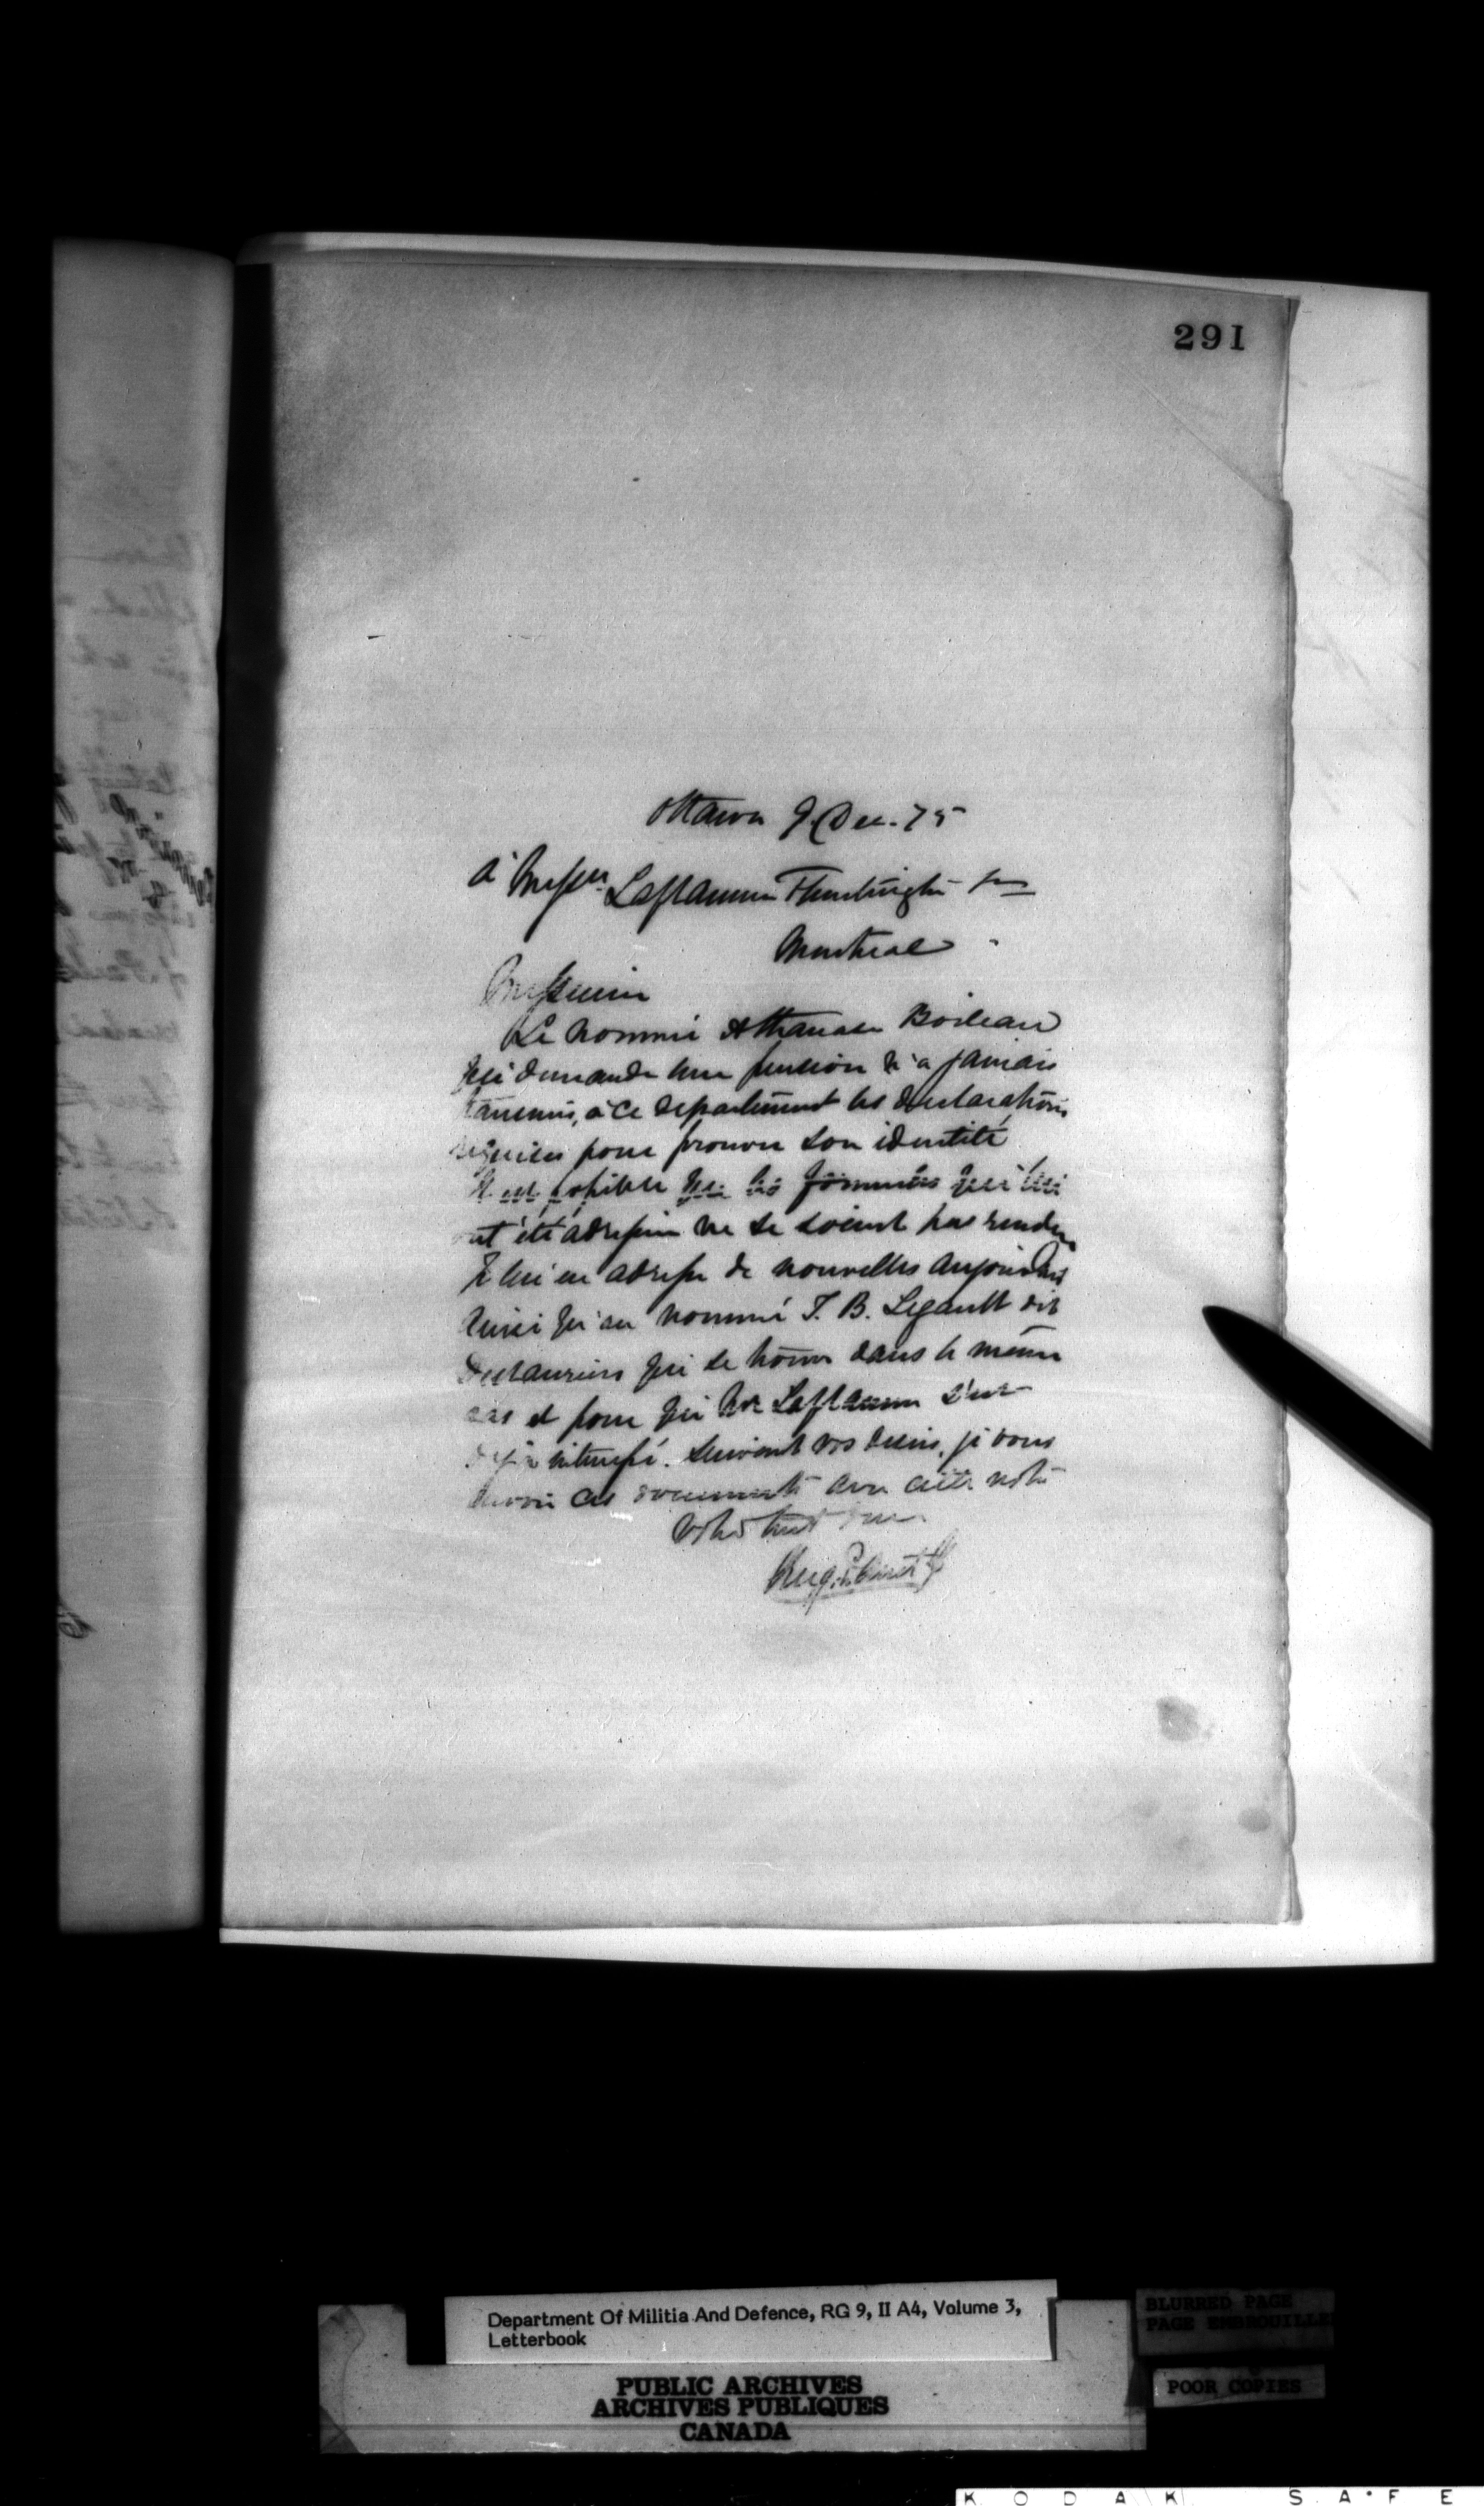 291
Ottawa 9 Dec. 75
à Messrs Laflamme Huntington &
Montreal
Messieurs
Le nommé Athanase Boileau
qui demande une pension n'a jamais
transmis, à ce departement les declarations
requises pour prouver son identité
Il est possible que les formules qui lui
ont été adressées ne se soient pas rendues
Je lui en adresse de nouvelles aujourd'hui
ainsi qu'au nommé J. B. Legault dit
Deslauriers qui se trouve dans le même
cas et pour qui Mr Laflamme s'est
déjà interessé. Suivant vos desirs, je vous
envoie ces documents avec cette note
Votre tout
Department Of Militia And Defence, RG 9, II A4, Volume 3,
Letterbook
BLURRED PAGE
PAGE EMBROUILLE
POOR COPIES
PUBLIC ARCHIVES
ARCHIVES PUBLIQUES
CANADA
K O D A K S A F E